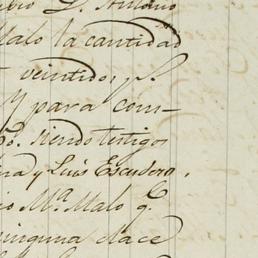 D. Antonio
Malo la cantidad
veintidos
Y para com-
siendo testigo
y Luis Escudero,
Mª Malo q.
ninguna clase